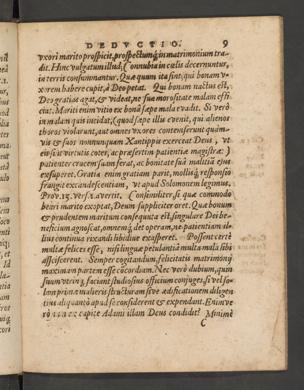 DEDVCTIO. 9
vxori marito prospicit, prospectumq́; in matrimonium tra-
dit. Hinc vulgatum illud; Connubia in cælis decernuntur,
in terris consummantur. Quæ quum ita sint, qui bonam v-
xorem habere cupit, à Deo petat. Qui bonam nactus est,
Deo gratias agat, & videat, ne sua morositate malam effi-
ciat. Mariti enim vitio ex bona sæpe mala evadit. Si verò
in malam quis incidat, (quod sæpe illis evenit, qui alienos
thoros violarunt, aut omnes vxores contemserunt quàm-
vis & suas nonnunquam Xanthippa exerceat Deus, vt
eius sui virtutis coter, ac præsertim patientiæ magistræ)
patienter crucem suam ferat, ac bonitate sua malitiã ejus
exsuperet. Gratia enim gratiam parit, molliq́; responsio
frangit excandescentiam, vt apud Solomonem legimus,
Prov. 15. vers. 1. averrit. Consimiliter, si quæ commodo
beari marito exoptat, Deum suppliciter oret. Quæ bonum
& prudentem maritum consequuta est, singulare Dei be-
neficium agnoscat, omnemq́; det operam, ne patientiam di-
vitis continua excandescentia exasperet. Possent certè
multæ felices esse, nisi linguæ petulantiâ multa mala sibi
asciscerent. Semper cogitandum, felicitatis matrimonij
maximam partem esse cõcordiam. Nec verò dubium, quin
suum vtriusq́; faciant studiosius officium conjuges, si vel so-
lam primæ mulieris structuram sive ædificationem diligen-
tius aliquantò apud se considerent & expendant. Enimve-
rò ex capite Adami illam Deus condidit? Minimè
C